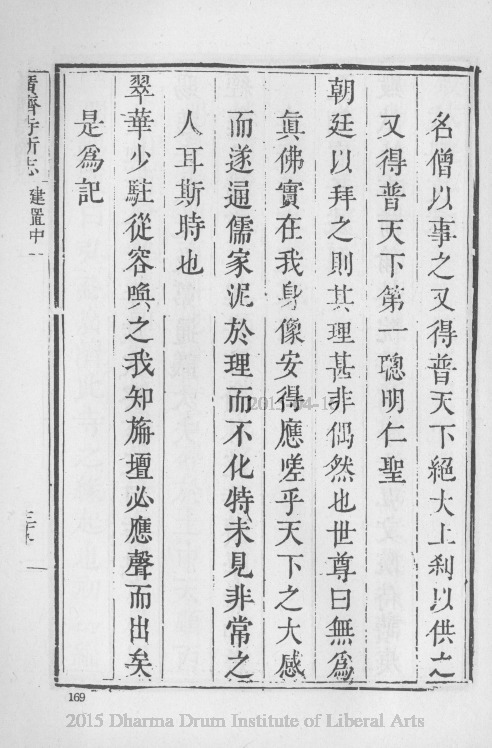 名僧以事之又得普天下絕大上刹以供之
又得普天下第一聰明仁聖
朝廷以拜之則其理甚非偶然也世尊曰無爲
眞佛實在我身像安得應嗟乎天下之大感
而遂通儒家泥於理而不化特未見非常之
人耳斯時也
翠華少駐從容喚之我知旃檀必應聲而出矣
是爲記
廣濟寺新志 建置中
169
2015 Dharma Drum Institute of Liberal Arts